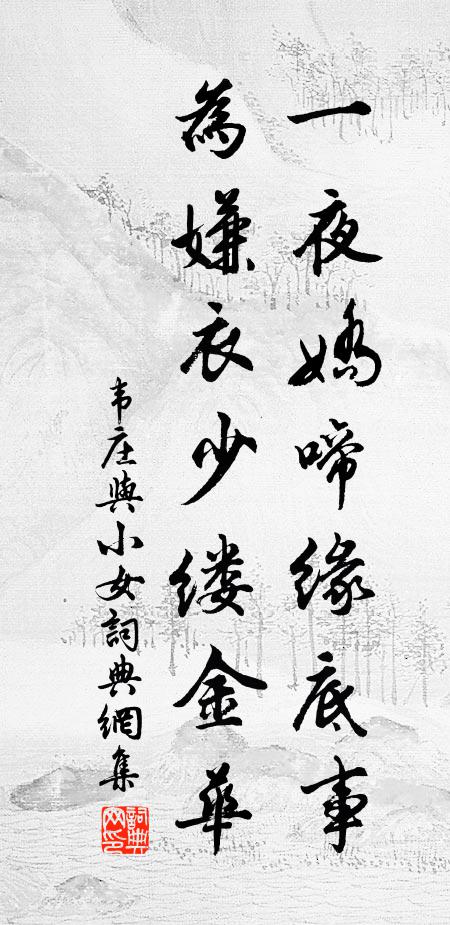 一夜嬌啼緣底事
為嫌衣少缕金華
韦庄與小女詞典網集
詞典网印